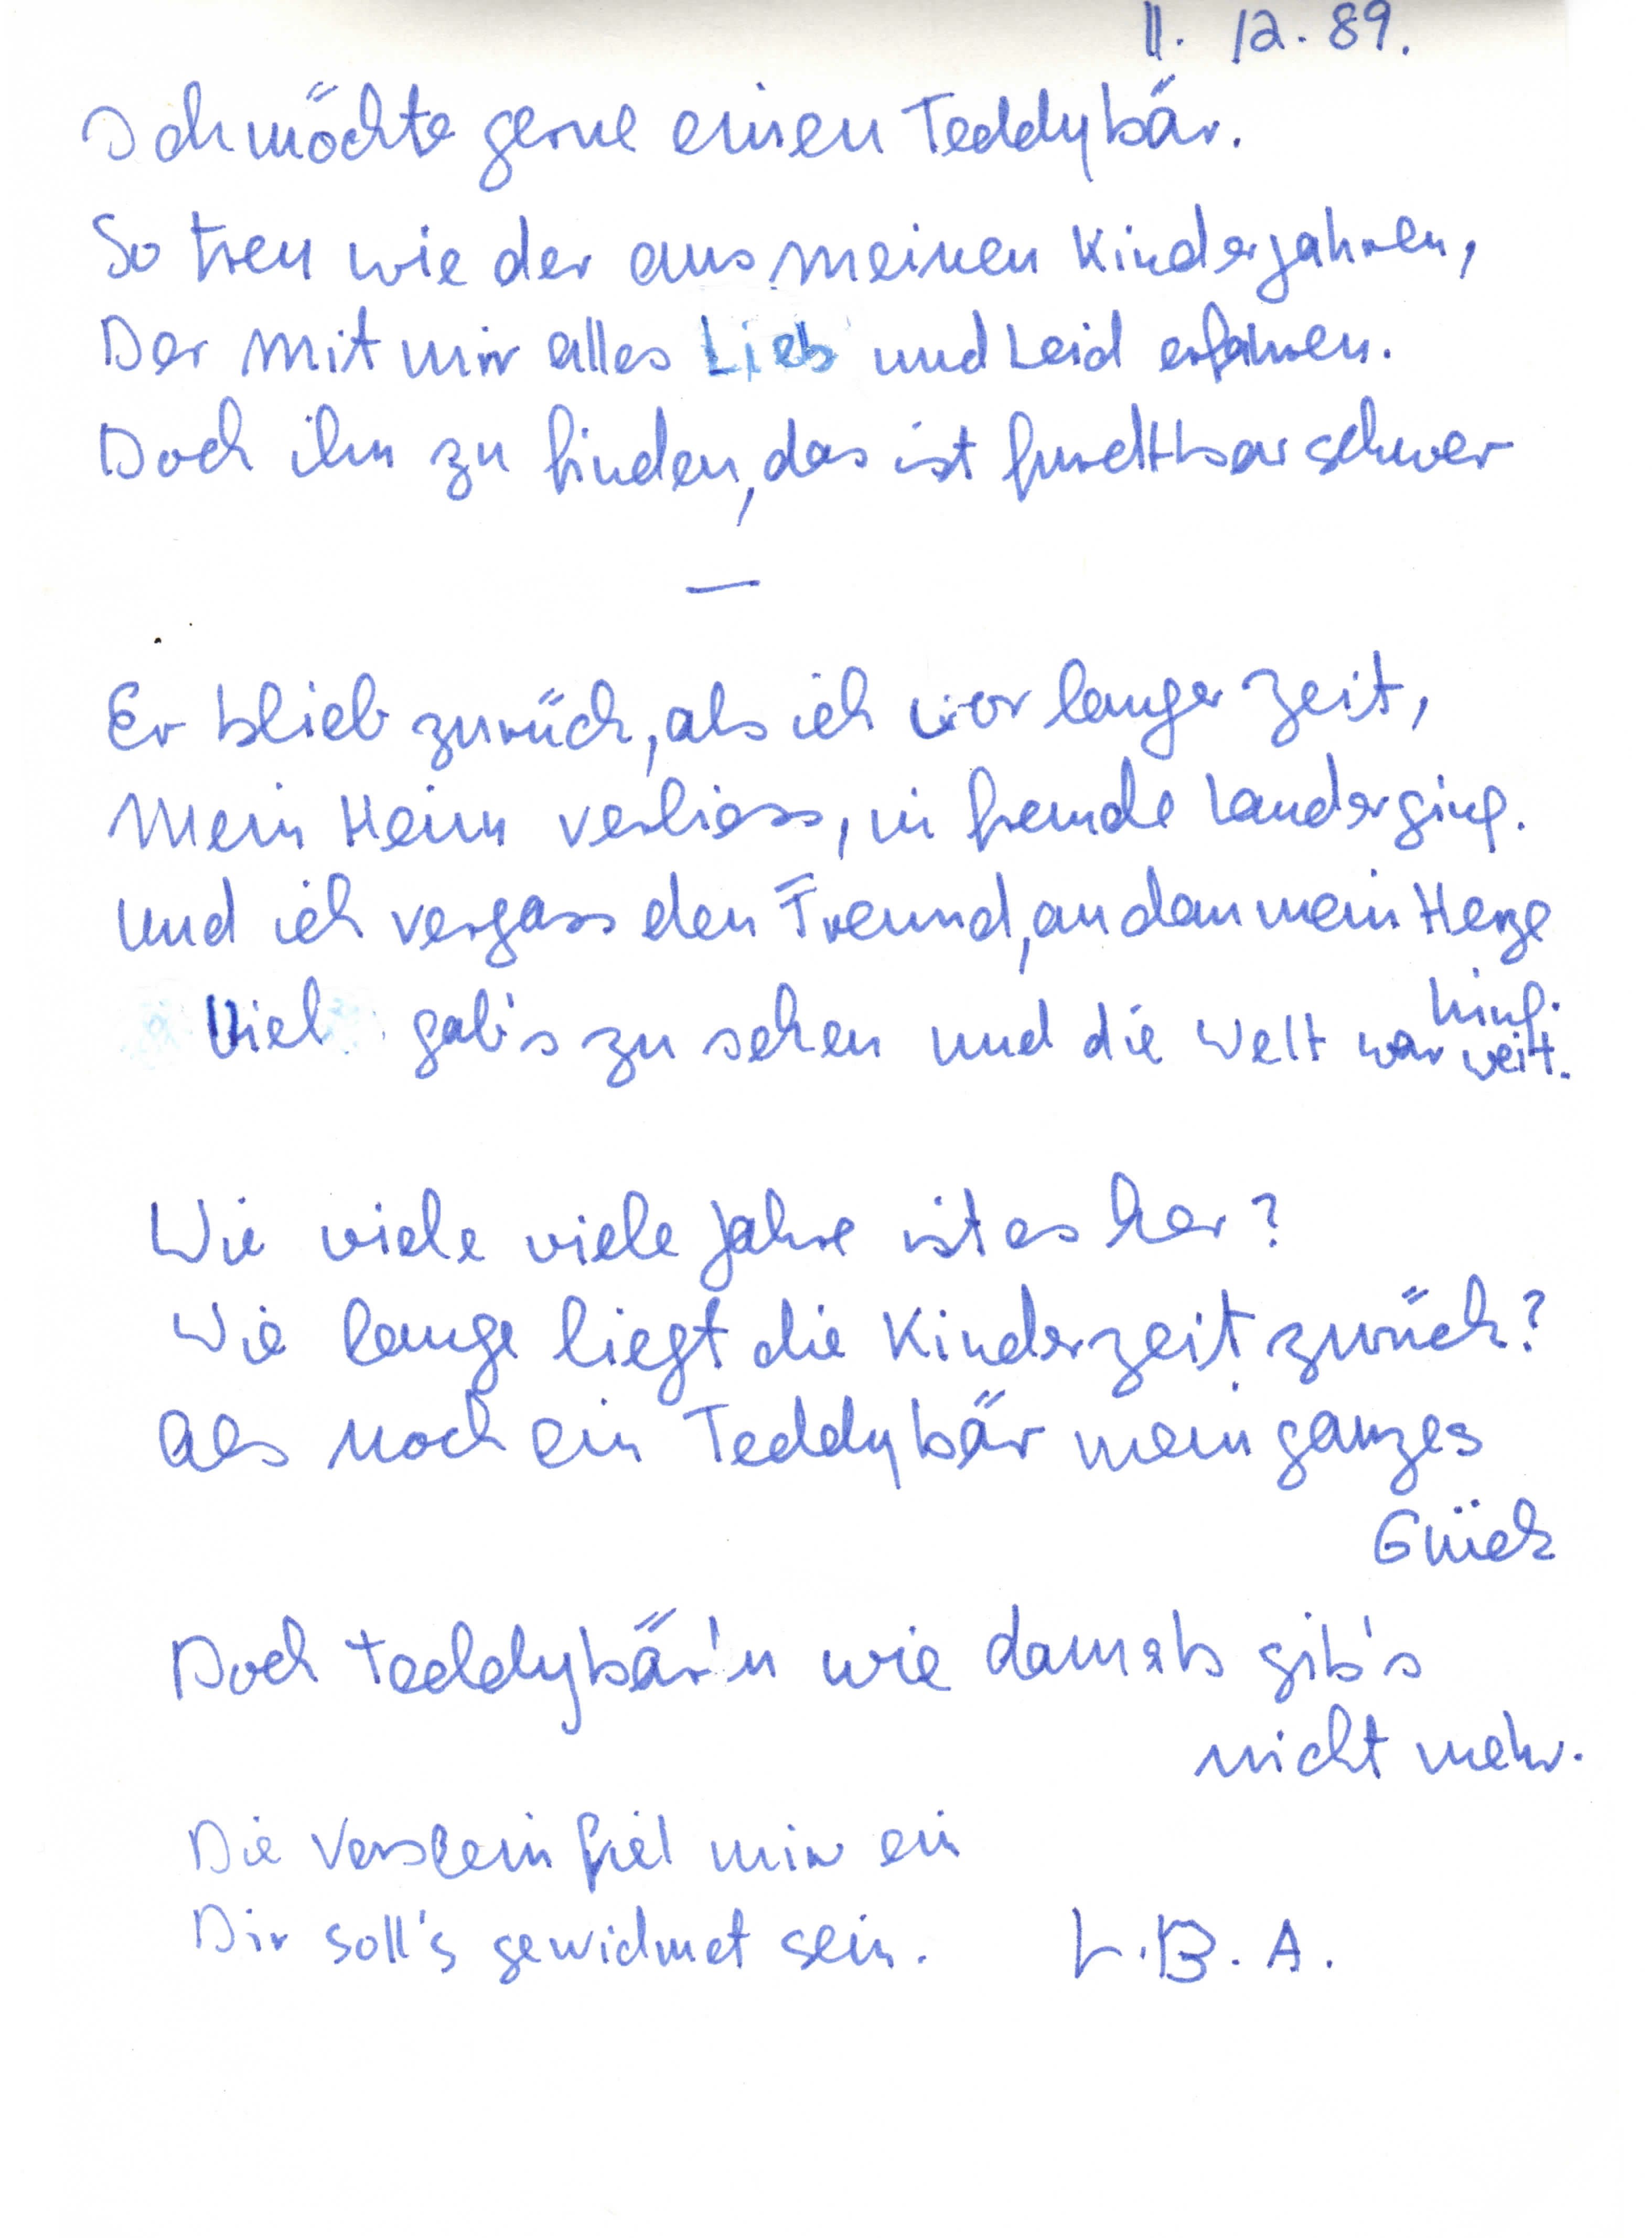 11. 12. 89.
Ich möchte gerne einen Teddybär.
So treu wie der aus meinen Kinderjahren,
Der mit mir alles Lieb und Leid erfahren.
Doch ihn zu finden, das ist furchtbar schwer
—
Er blieb zurück, als ich vor langer Zeit,
Mein Heim verliess, in fremde Länder ging.
Und ich vergass den Freund, an dem mein Herze
hing.
Viel gab's zu sehen und die Welt war weit.
Wie viele viele Jahre ist es her?
Wie lange liegt die Kinderzeit zurück?
Als noch ein Teddybär mein ganzes
Glück
Doch Teddybär'n wie damals gib's
nicht mehr.
Die Verslein fiel mir ein
Dir soll's gewidmet sein. L.B.A.